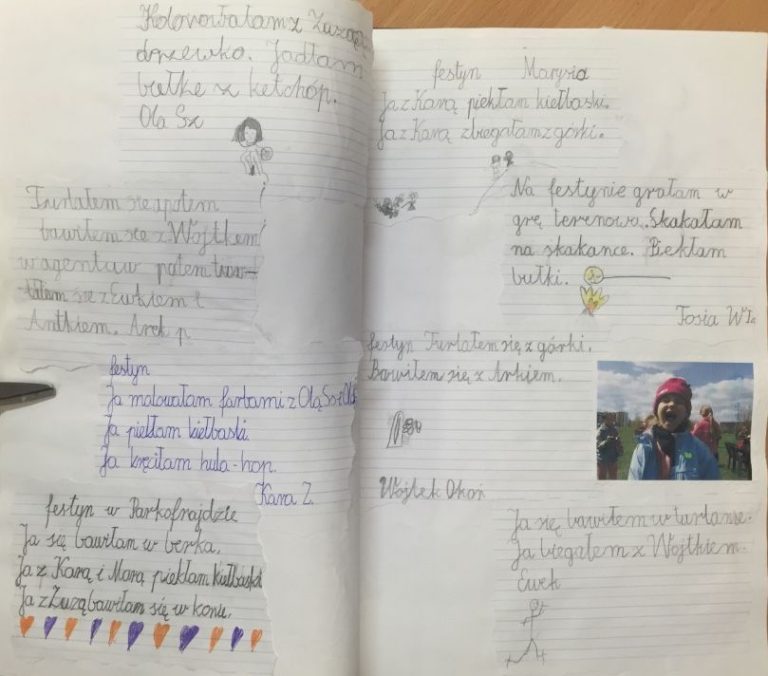 Kolorowałam z Zuzą
drzewko. Jadłam
bułkę z ketchóp.
Ola Sz
Turlałem się apotem
bawiłem się z Wojtkem
w agentaw potem turr-
lałem się z Ewkiem i
Antkiem. Arek p
festyn
Ja malowałam farbami z Olą So i Olą
Ja piekłam kiełbaski.
Ja kręciłam hula-hop.
Kara Z.
festyn w Parkofrajdzie
Ja się bawiłam w berka.
Ja z Karą i Marą piekłam kiełbaski
Ja z Zuzą bawiłam się w konu.
festyn Marysia
Ja z Karą piekłam kiełbaski.
Ja z Karą zbiegałam z górki.
Na festynie grałam w
grę terenową. Skakałam
na skakance. Piekłam
bułki.
Tosia W
festyn Turlałem się z górki.
Bawiłem się z Arkiem.
Wojtek Okoń
Ja się bawiłem w turlanie.
Ja biegałem z Wojtkiem.
Ewek